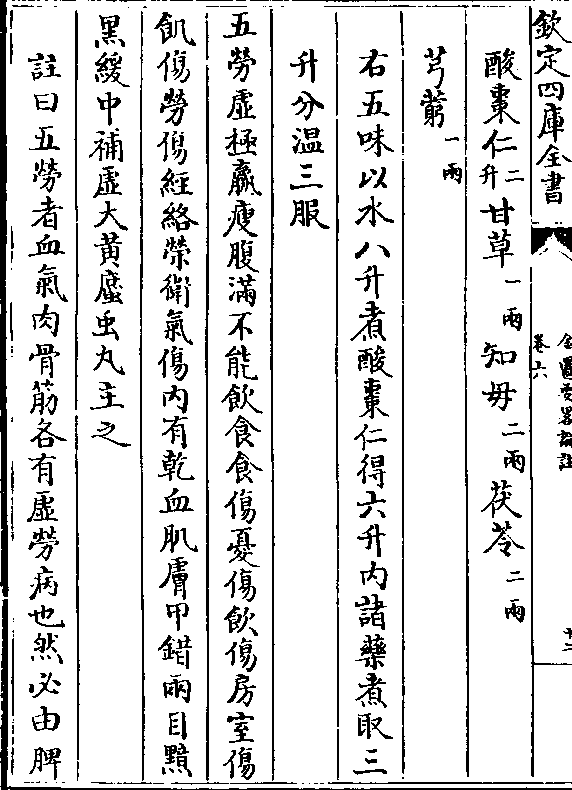 欽定四庫全書
金匱要略論註
卷六
十二
酸棗仁二升甘草一兩知母二兩茯苓二兩
芎藭一兩
右五味以水八升煮酸棗仁得六升内諸藥煮取三
升分温三服
五勞虚極羸瘦腹滿不能飲食食傷憂傷飲傷房室傷
飢傷勞傷經絡榮衛氣傷内有乾血肌膚甲錯兩目黯
黑緩中補虚大黄䗪虫丸主之
註曰五勞者血氣肉骨筋各有虚勞病也然必由脾